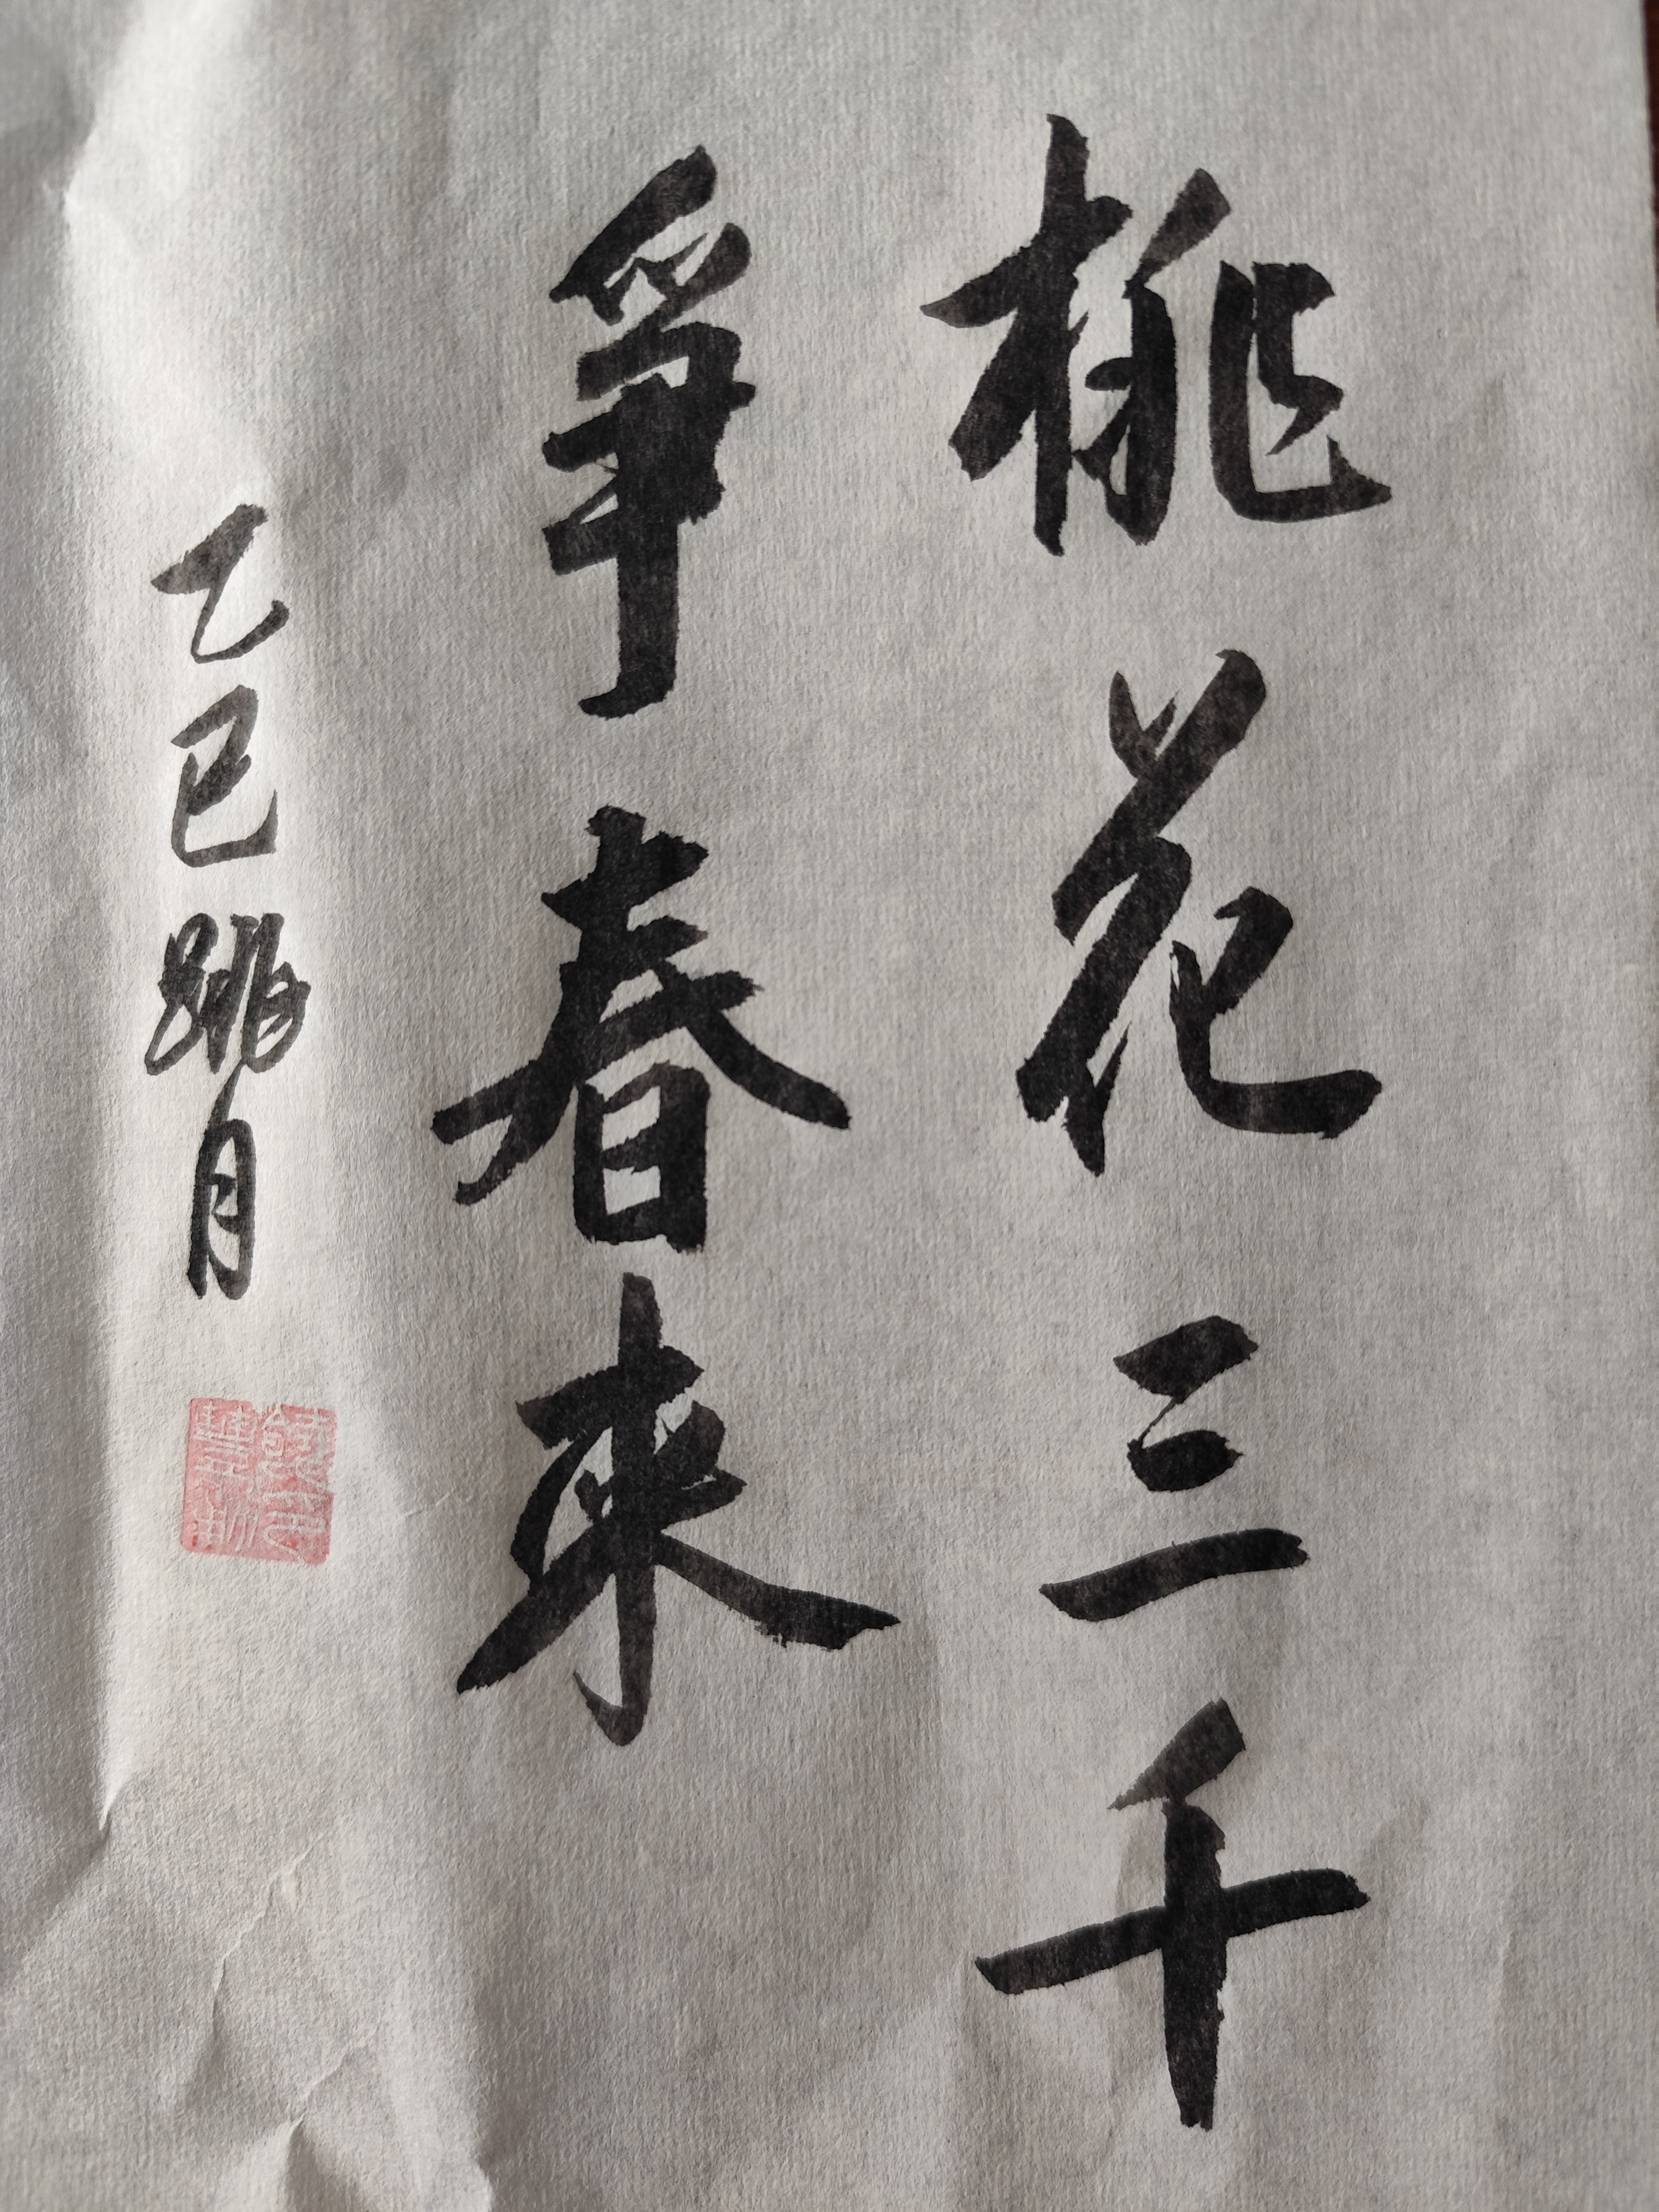 桃花三千
爭春來
乙巳 跳月